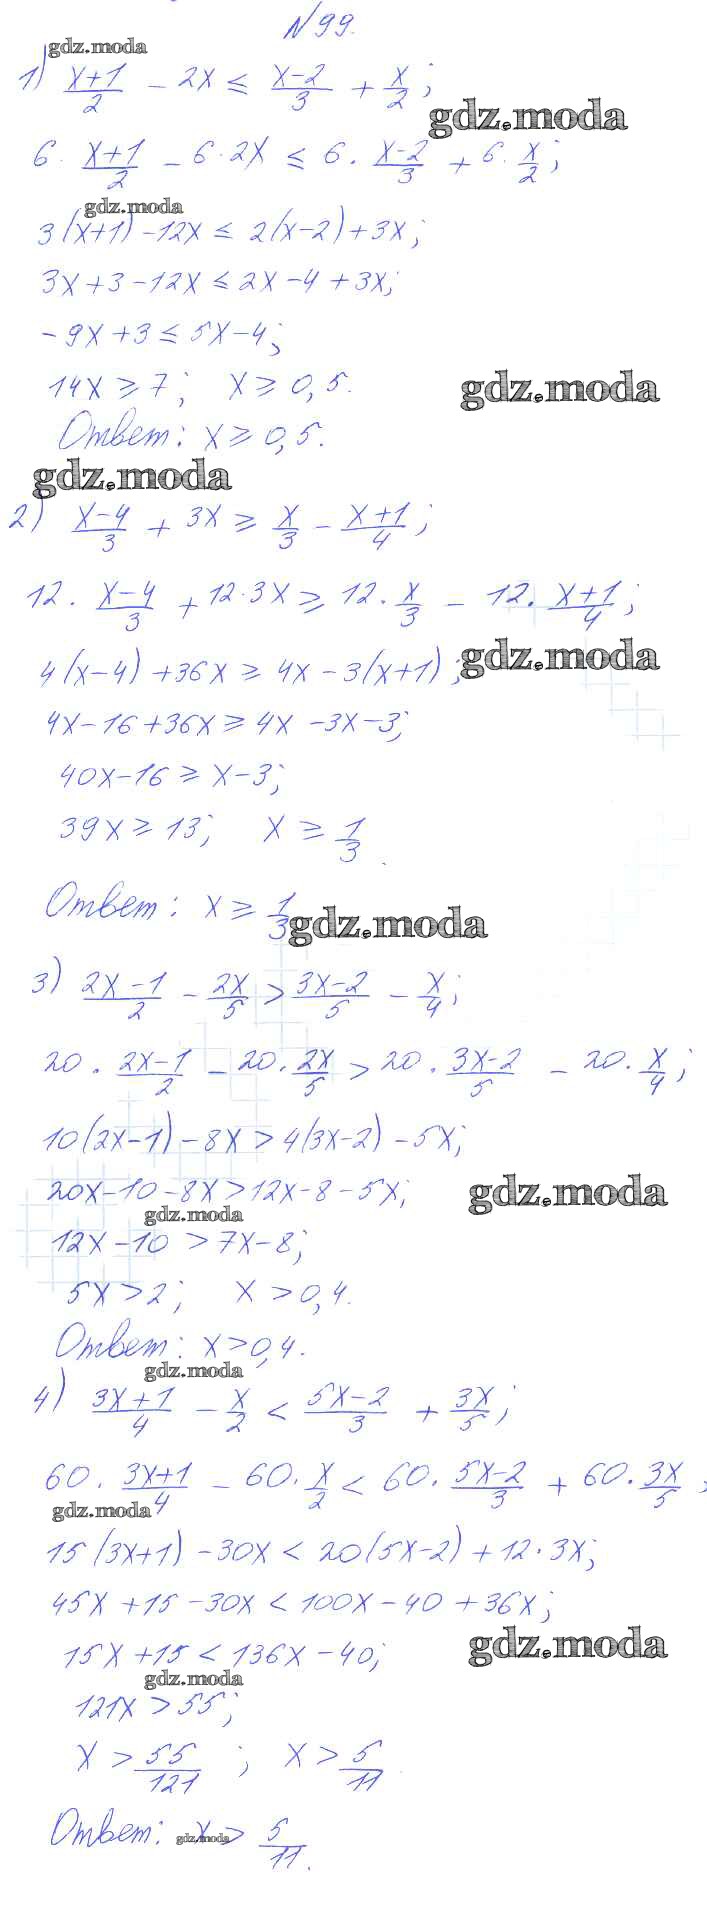 №99.
gdz.moda
1) (x+1)/2 - 2x ≤ (x-2)/3 + x/2;
gdz.moda
6 · (x+1)/2 - 6·2x ≤ 6 · (x-2)/3 + 6 · x/2;
gdz.moda
3(x+1)-12x ≤ 2(x-2)+3x;
3x+3-12x ≤ 2x-4+3x;
-9x+3 ≤ 5x-4;
14x ≥ 7; x ≥ 0,5.
gdz.moda
Ответ: x ≥ 0,5.
gdz.moda
2) (x-4)/3 + 3x ≥ x/3 - (x+1)/4;
12 · (x-4)/3 + 12·3x ≥ 12 · x/3 - 12 · (x+1)/4;
gdz.moda
4(x-4)+36x ≥ 4x-3(x+1);
4x-16+36x ≥ 4x-3x-3;
40x-16 ≥ x-3;
39x ≥ 13; x ≥ 1/3.
Ответ: x ≥ 1/3
gdz.moda
3) (2x-1)/2 - 2x/5 > (3x-2)/5 - x/4;
20 · (2x-1)/2 - 20 · 2x/5 > 20 · (3x-2)/5 - 20 · x/4;
10(2x-1)-8x > 4(3x-2)-5x;
20x-10-8x > 12x-8-5x;
gdz.moda
gdz.moda
12x-10 > 7x-8;
5x > 2; x > 0,4.
Ответ: x > 0,4.
gdz.moda
4) (3x+1)/4 - x/2 < (5x-2)/3 + 3x/5;
60 · (3x+1)/4 - 60 · x/2 < 60 · (5x-2)/3 + 60 · 3x/5;
gdz.moda
15(3x+1)-30x < 20(5x-2)+12·3x;
45x+15-30x < 100x-40+36x;
gdz.moda
15x+15 < 136x-40;
gdz.moda
121x > 55;
x > 55/121; x > 5/11.
Ответ: x > 5/11.
gdz.moda